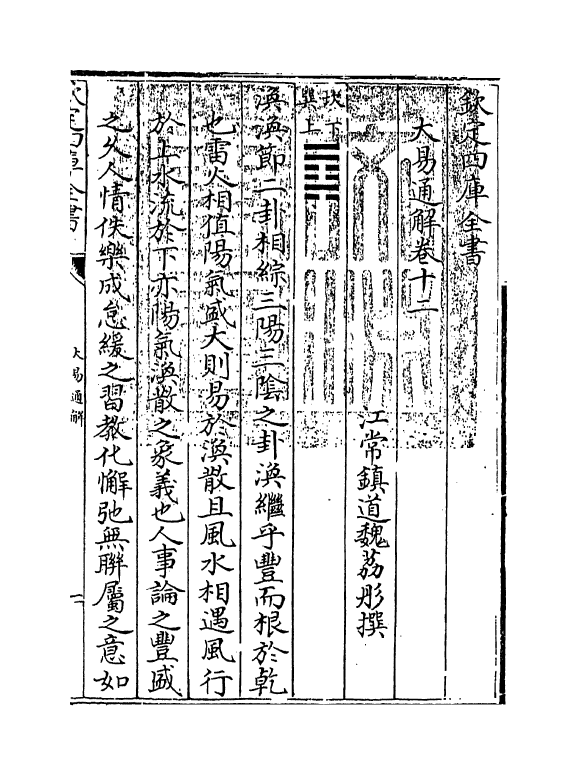 欽定四庫全書
大易通解卷十二
江常鎮道魏荔彤撰
坎下
巽上
渙渙節二卦相綜三陽三陰之卦渙繼乎豐而根於乾
也雷火相值陽氣盛大則易於渙散且風水相遇風行
於上水流於下亦陽氣渙散之象義也人事論之豐盛
之久人情佚樂成怠緩之習教化懈弛無聯屬之意如
欽定四庫全書
大易通解
一